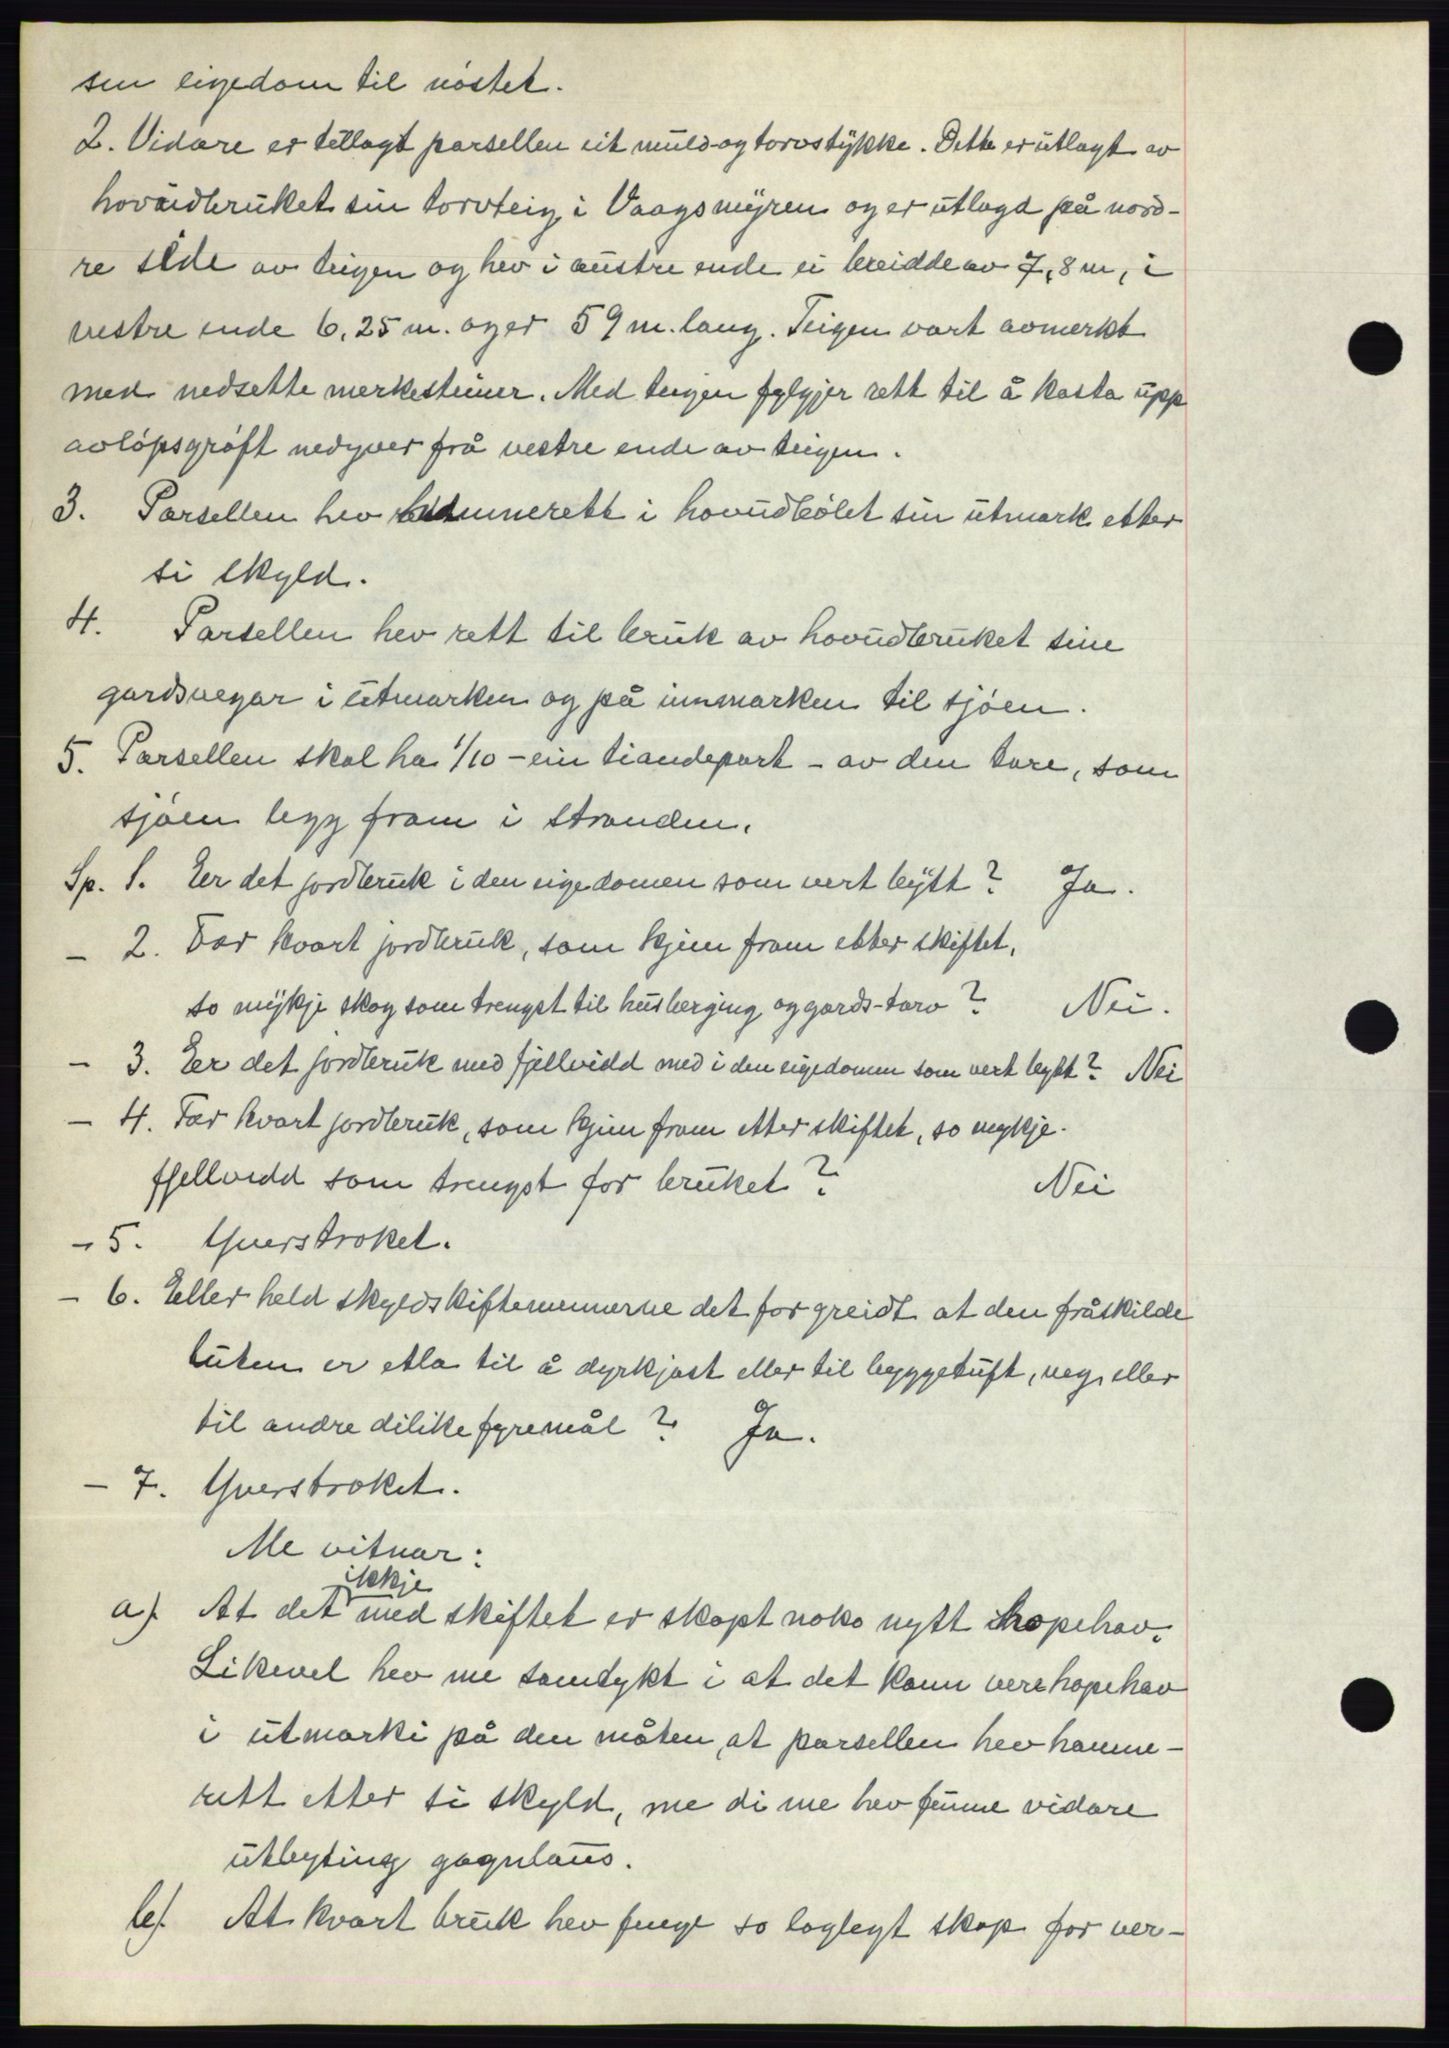 sin eigedom til nöstet.
2. Vidare er tillagt parsellen eit muld-og torvstykke. Dette er utlagt av
hovudbruket sin torvteig i Vaagsmyren og er utlagd på nord-
re side av teigen og hev i austre ende ei breidde av 7,8 m, i
vestre ende 6,25 m. og er 59 m. lang. Teigen vart avmerkt
med nedsette merkesteiner. Med teigen fylgjer rett til å kasta upp
avlöpsgröft nedyver frå vestre ende av teigen.
3. Parsellen hev hamnerett i hovudbölet sin utmark etter
si skyld.
4. Parsellen hev rett til bruk av hovudbruket sine
gardsvegar i utmarken og på innmarken til sjöen.
5. Parsellen skal ha 1/10 - ein tiandepart - av den tare, som
sjöen legg fram i stranden.
Sp. 1. Er det jordbruk i den eigedomen som vert bytt? Ja.
- 2. Fær kvart jordbruk, som kjem fram etter skiftet,
so mykje skog som trengst til husberging og gards-tarv? Nei.
- 3. Er det jordbruk med fjellvidd med i den eigedomen som vert bytt? Nei
- 4. Fær kvart jordbruk, som kjem fram etter skiftet, so mykje
fjellvidd som trengst for bruket? Nei
- 5. Yverstroket.
- 6. Eller held skyldskiftemennerne det for greidt at den fråskilde
luten er etla til å dyrkjast eller til byggetuft, veg, eller
til andre dilike fyremål? Ja.
- 7. Yverstroket.
Me vitnar:
ikkje
a). At det med skiftet er skapt noko nytt hopehav.
Likevel hev me samtykt i at det kann vere hopehav
i utmarki på den måten, at parsellen hev hamne-
rett etter si skyld, me di me hev funne vidare
utbyting gagnlaus.
b). At kvart bruk hev fenge so laglegt skap for ver-